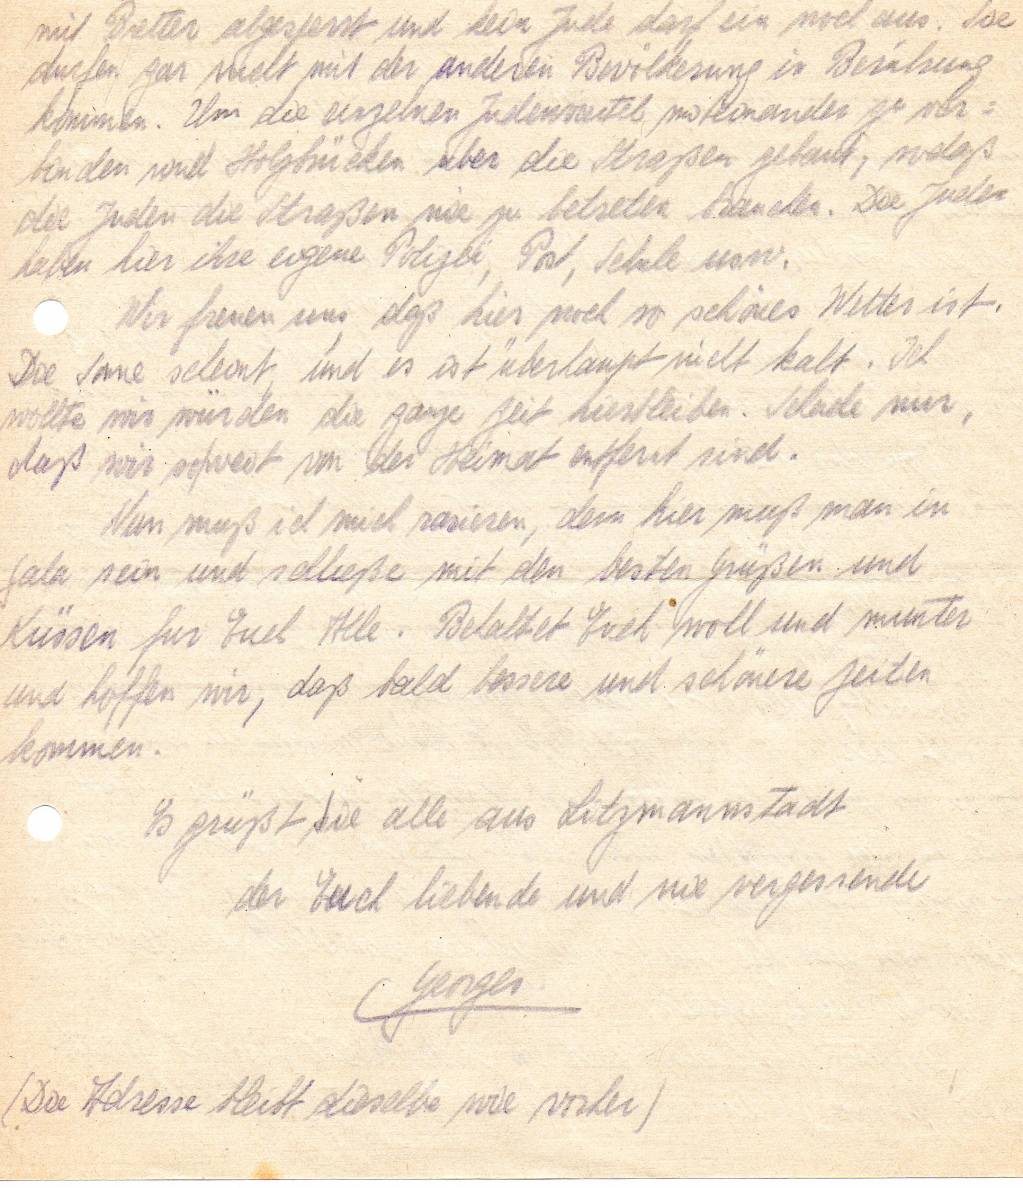 mit Bretter abgesperrt und kein Jude darf ein noch aus. Sie
dürfen gar nicht mit der anderen Bevölkerung in Berührung
kommen. Um die einzelnen Judenviertel miteinander zu ver=
binden sind Holzbrücken über die Straßen gebaut, sodaß
die Juden die Straßen nie zu betreten brauchen. Die Juden
haben hier ihre eigene Polizei, Post, Schule usw.
Wir freuen uns daß hier noch so schönes Wetter ist.
Die Sonne scheint, und es ist überhaupt nicht kalt. Ich
wollte wir würden die ganze Zeit hierbleiben. Schade nur,
daß wir so weit von der Heimat entfernt sind.
Nun muß ich mich rasieren, denn hier muß man in
Gala sein und schließe mit den besten Grüßen und
Küssen für Euch Alle. Behaltet Euch wohl und munter
und hoffen wir, daß bald bessere und schönere Zeiten
kommen.
Es grüßt Sie alle aus Litzmannstadt
der Euch liebende und nie vergessende
Georges
(Die Adresse bleibt dieselbe wie vorher)